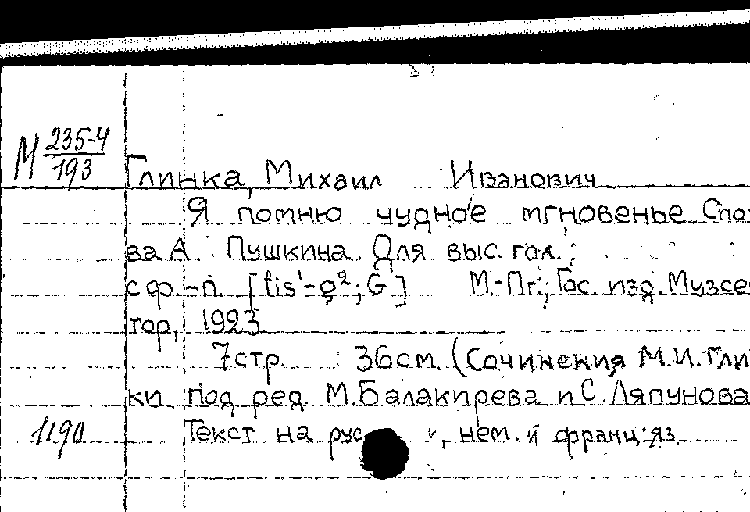 М 235-4
193
Глинка, Михаил Иванович
Я помню чудное мгновенье Сло-
ва А. Пушкина Для выс. гол.
с ф.-п. [fis¹-g²; G.] М.-Пг., Гос. изд. Музсек-
тор, 1923
7 стр. 36 см. (Сочинения М.И. Глин-
ки под ред. М. Балакирева и С. Ляпунова
1190 Текст на рус , нем. и франц. яз.